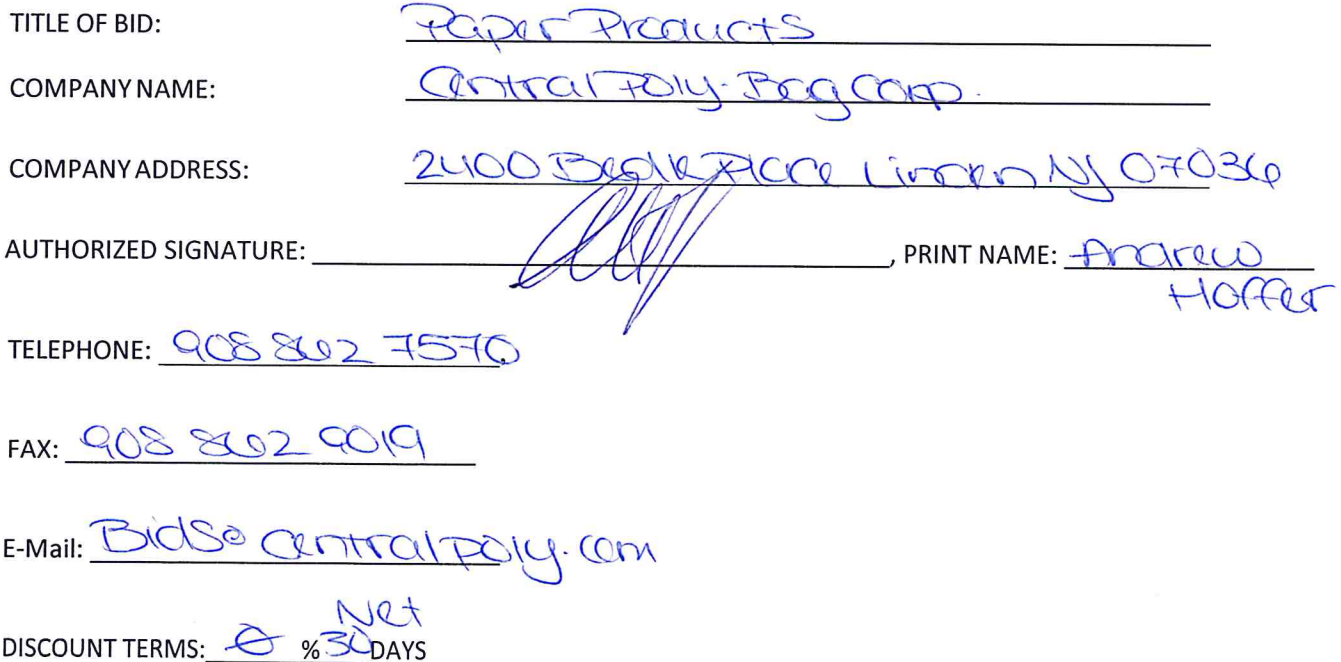 TITLE OF BID: Paper Products
COMPANY NAME: Central Poly-Bag Corp.
COMPANY ADDRESS: 2400 Bedle Place Linden NJ 07036
AUTHORIZED SIGNATURE: , PRINT NAME: Andrew
Hoffer
TELEPHONE: 908 862 7570
FAX: 908 862 9019
E-Mail: Bids@centralpoly.com
Net
DISCOUNT TERMS: 0 % 30 DAYS